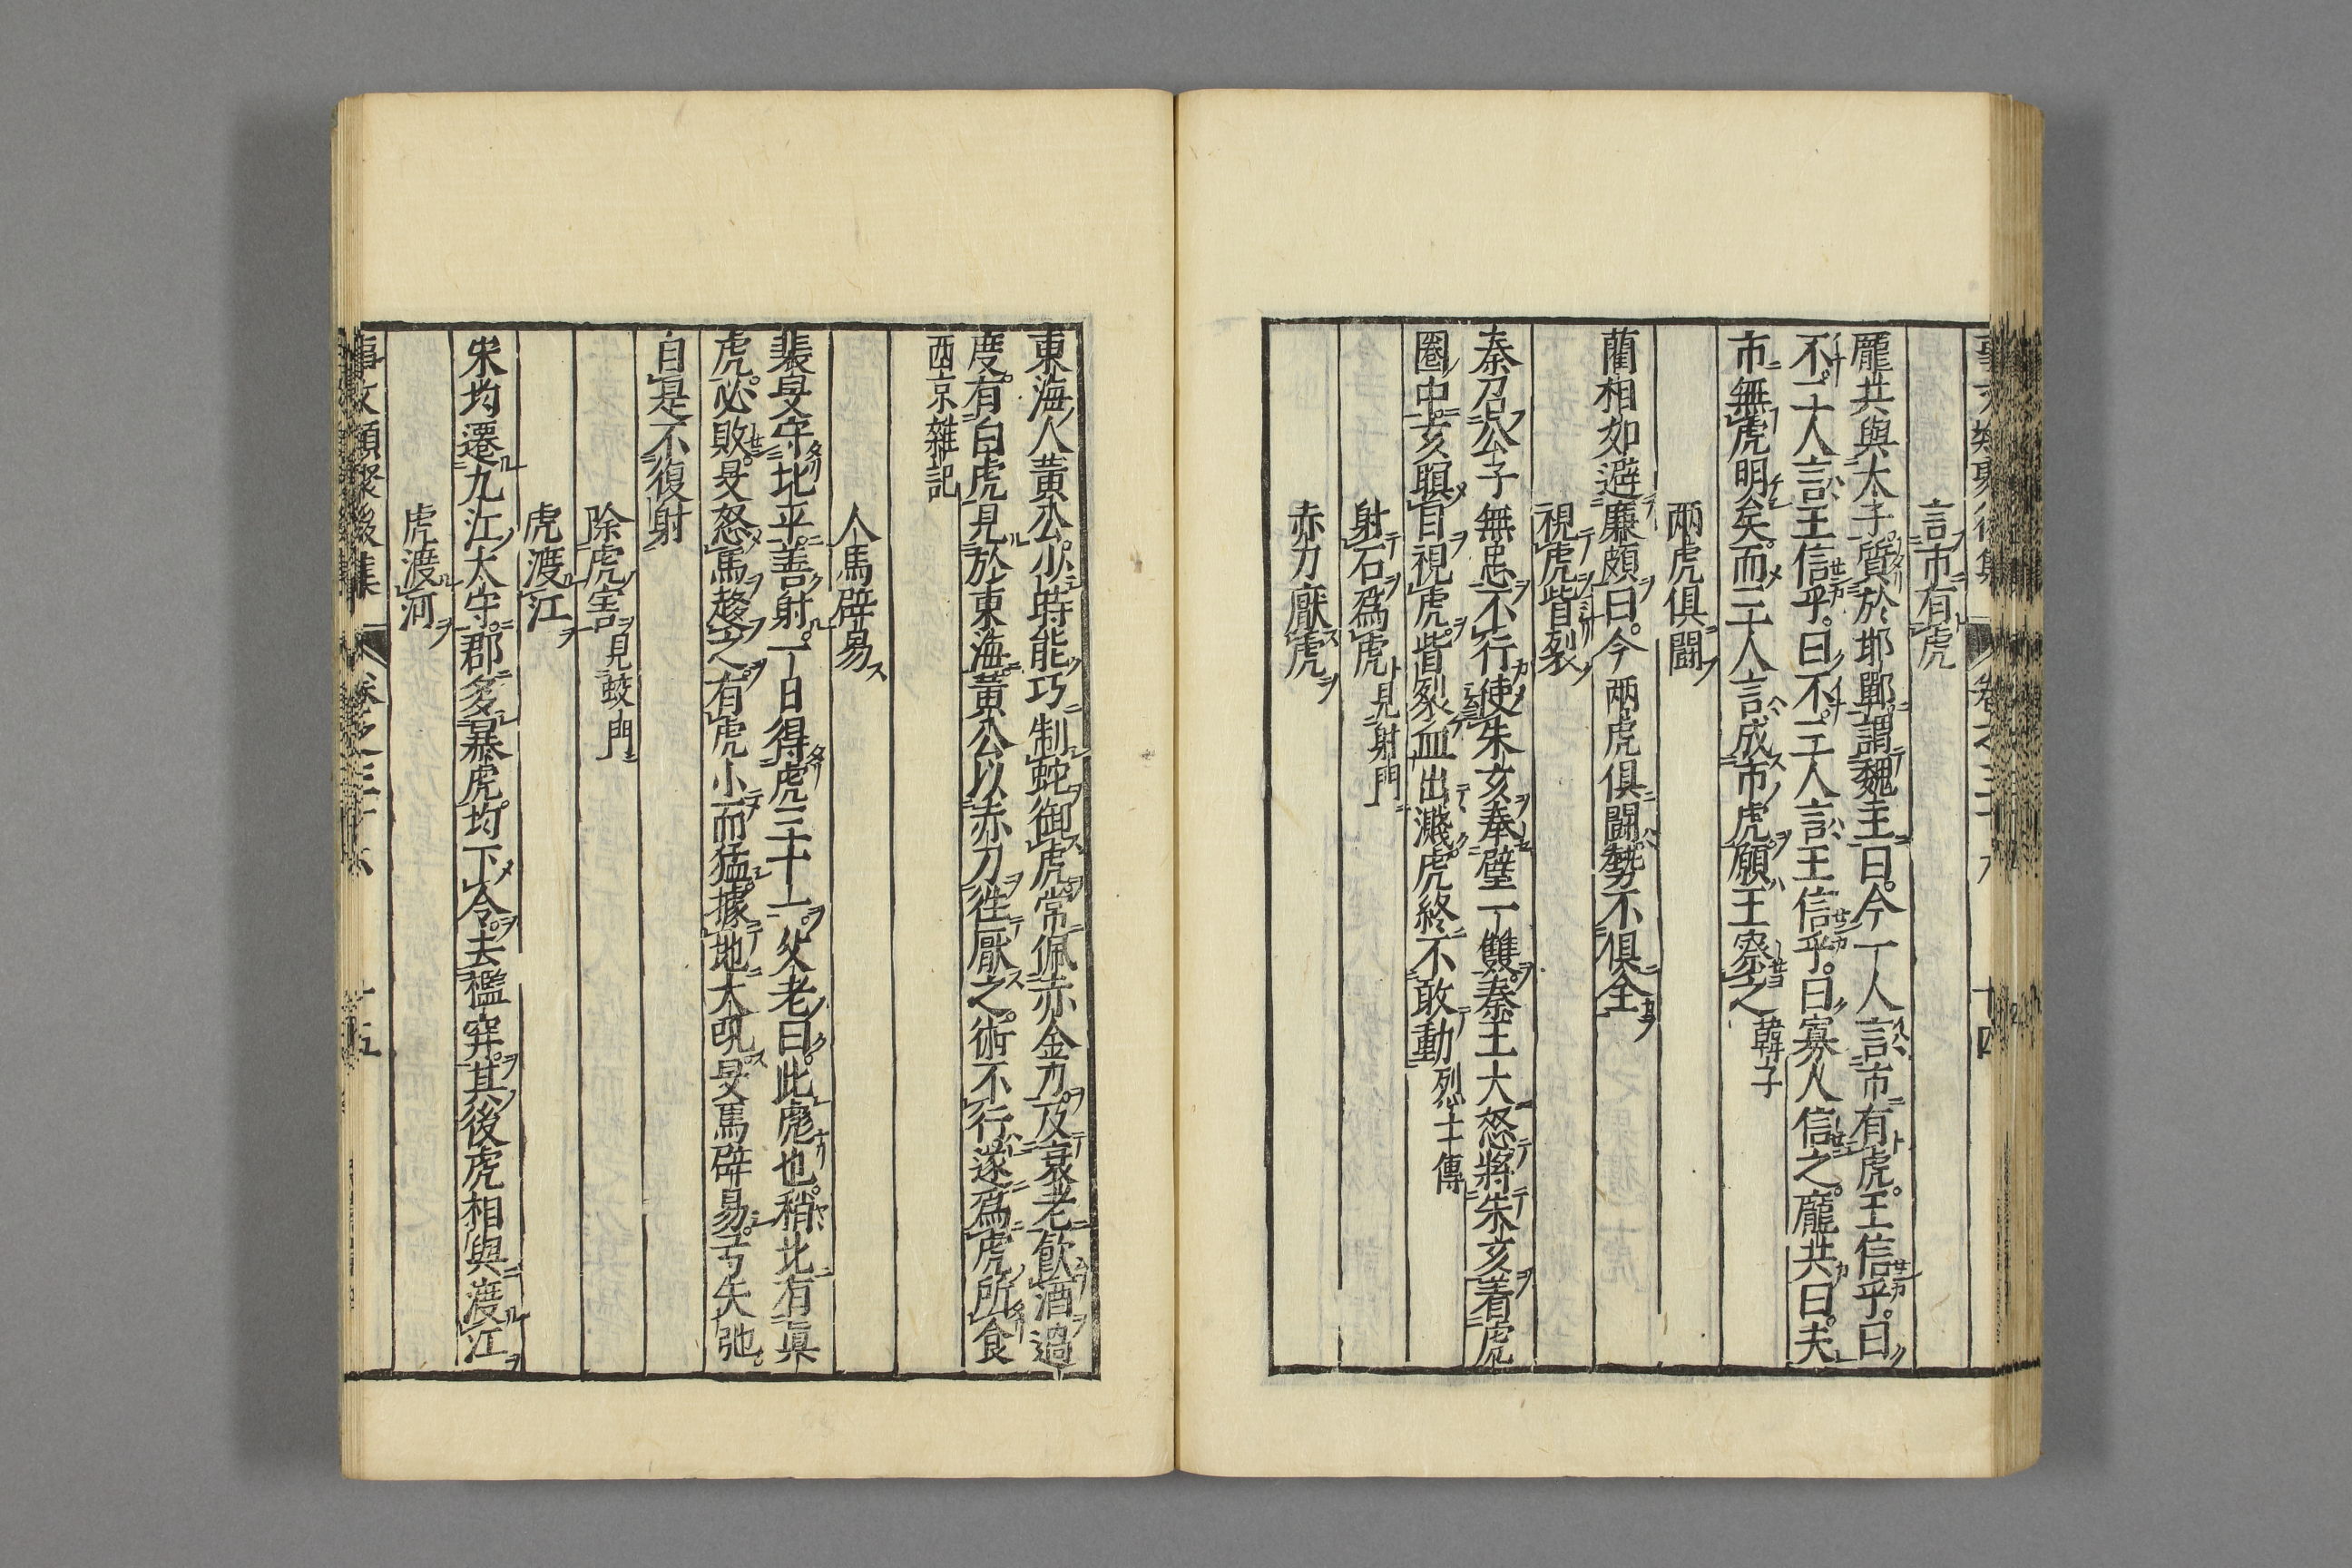 言市有虎
龐共與太子質於邯鄲謂魏王曰今一人言市有虎王信乎曰
不二十人言王信乎曰不三十人言王信乎曰寡人信之龐共曰夫
市無虎明矣而三人言成市虎願王察之韓子
兩虎俱鬪
藺相如避廉頗曰今兩虎俱鬪勢不俱全
視虎眥裂
秦召公子無忌不行使朱亥奉璧一雙秦王大怒將朱亥着虎
圈中亥瞋目視虎眥裂血出濺虎終不敢動烈士傳
射石爲虎見射門
赤刀厭虎
東海人黃公小時能巧制蛇御虎常佩赤金刀及衰老飲酒過
度有白虎見於東海黃公以赤刀往厭之術不行遂爲虎所食
西京雜記
人馬辟易
裴旻守北平善射一日得虎三十一父老曰此彪也稍北有眞
虎必敗旻怒馬趨之有虎小而猛據地大吼旻馬辟易弓矢弛
自是不復射
除虎害見蛟門
虎渡江
宋均遷九江太守郡多暴虎均下令去檻穽其後虎相與渡江
虎渡河
事文類聚後集 卷之三十六 十五